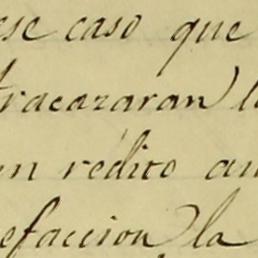 ese caso que
fracazaran l
un rédito an
efaccion la